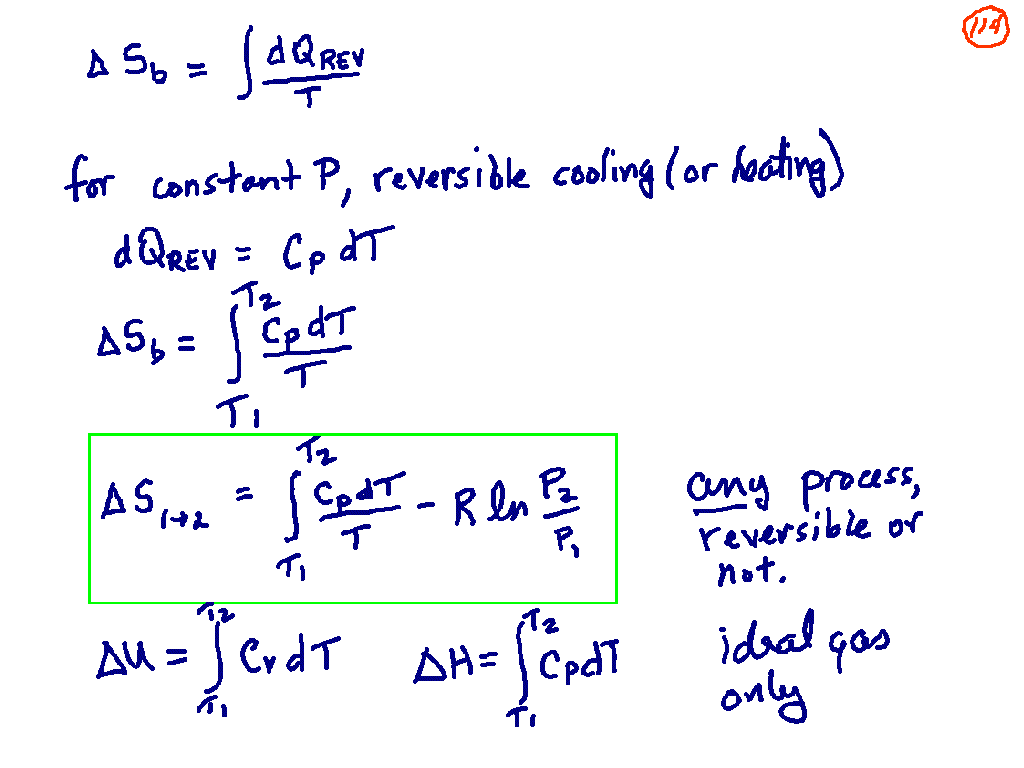 114
Δ S_b = ∫ dQ_REV / T
for constant P, reversible cooling (or heating)
dQ_REV = C_P dT
ΔS_b = ∫_{T_1}^{T_2} C_P dT / T
ΔS_{1→2} = ∫_{T_1}^{T_2} C_P dT / T - R ln P_2 / P_1
any process,
reversible or
not.
ΔU = ∫_{T_1}^{T_2} C_V dT    ΔH = ∫_{T_1}^{T_2} C_P dT
ideal gas
only